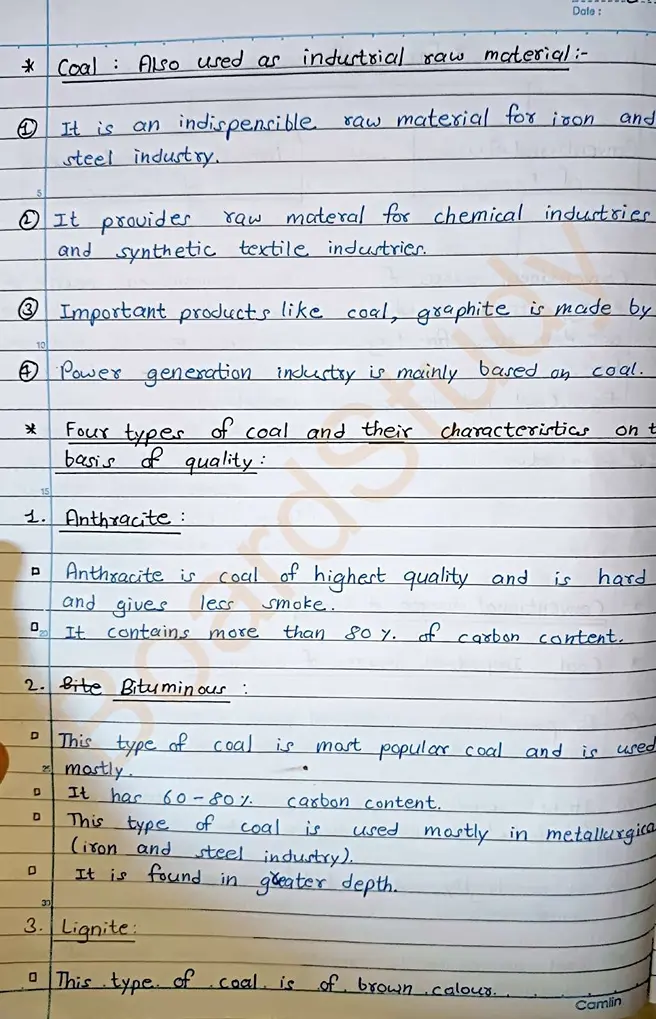 Date :
* Coal : Also used as industrial raw material :-
① It is an indispensible raw material for iron and
steel industry.
5
② It provides raw materal for chemical industries
and synthetic textile industries.
③ Important products like coal, graphite is made by
10
④ Power generation industry is mainly based on coal.
* Four types of coal and their characteristics on t
basis of quality :
15
1. Anthracite :
▫ Anthracite is coal of highest quality and is hard
and gives less smoke.
▫ 20 It contains more than 80 %. of carbon content.
2. Bite Bituminous :
▫ This type of coal is most popular coal and is used
25 mostly.
▫ It has 60 - 80 %. carbon content.
▫ This type of coal is used mostly in metallurgica
(iron and steel industry).
▫ It is found in greater depth.
30
3. Lignite:
▫ This type of coal is of brown colour.
Camlin
BoardStudy